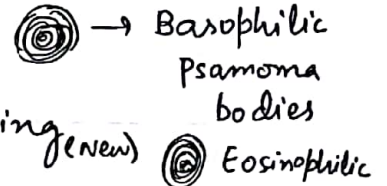 → Basophilic
Psamoma
bodies
ing (New)
Eosinophilic